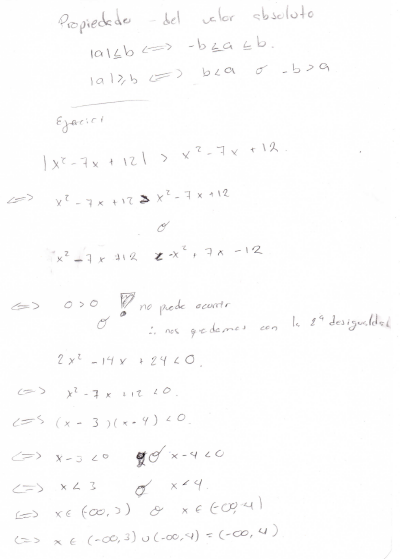 Propiedades - del valor absoluto
|a| ≤ b <=> -b ≤ a ≤ b.
|a| ≥ b <=> b < a o -b > a
Ejercici
|x² - 7x + 12| > x² - 7x + 12.
<=> x² - 7x + 12 > x² - 7x + 12
o
x² - 7x + 12 < -x² + 7x - 12
<=> 0 > 0 ! no puede ocurrir
o ∴ nos quedamos con la 2ª desigualdad
2x² - 14x + 24 < 0.
<=> x² - 7x + 12 < 0.
<=> (x - 3)(x - 4) < 0.
<=> x - 3 < 0 o x - 4 < 0
<=> x < 3 o x < 4.
<=> x ∈ (-∞, 3) o x ∈ (-∞, 4)
<=> x ∈ (-∞, 3) ∪ (-∞, 4) = (-∞, 4)